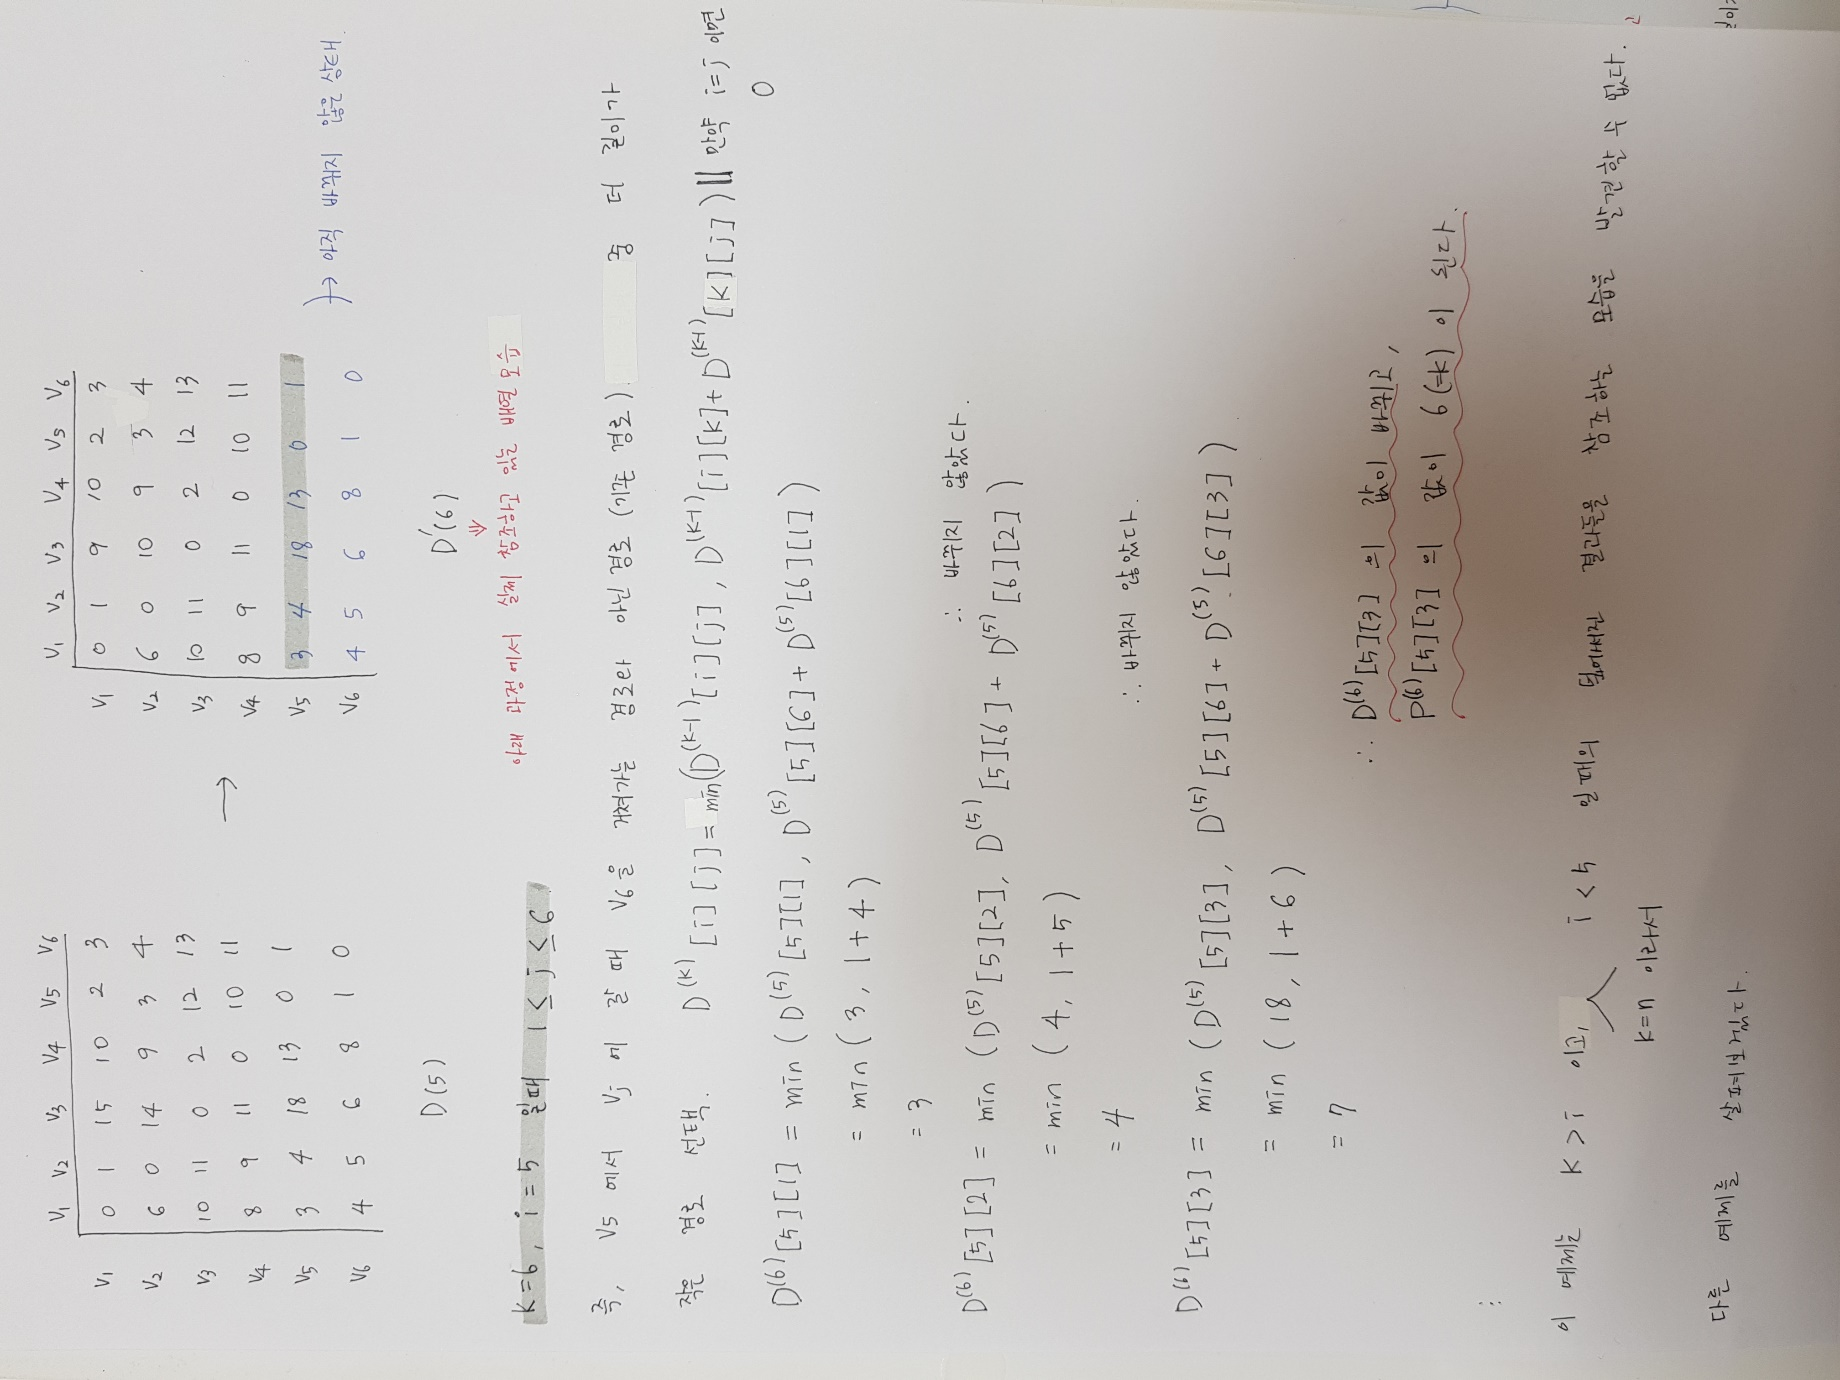 V1 V2 V3 V4 V5 V6
V1 0 1 15 10 2 3
V2 6 0 14 9 3 4
V3 10 11 0 2 12 13
V4 8 9 11 0 10 11
V5 3 4 18 13 0 1
V6 4 5 6 8 1 0
D(5)
→
V1 V2 V3 V4 V5 V6
V1 0 1 9 10 2 3
V2 6 0 10 9 3 4
V3 10 11 0 2 12 13
V4 8 9 11 0 10 11
V5 3 4 18 13 0 1
V6 4 5 6 8 1 0
→ 아직 바뀌지 않은 상태.
D'(6)
⇓
아래 과정에서 실제 참조하고 있는 배열 모습
K=6, i=5 일때 1≤j≤6
즉, V5 에서 Vj 에 갈 때 V6을 거쳐가는 경로와 아닌 경로 (기존 경로) 중 더 길이가
작은 경로 선택. D^(K)[i][j]=min(D^(K-1)[i][j], D^(K-1)[i][K]+D^(K-1)[K][j]) || 만약 i=j 이면
0
D^(6)[5][1] = min (D^(5)[5][1], D^(5)[5][6]+D^(5)[6][1])
= min (3, 1+4)
= 3
∴ 바뀌지 않았다.
D^(6)[5][2] = min (D^(5)[5][2], D^(5)[5][6]+D^(5)[6][2])
= min (4, 1+5)
= 4
∴ 바뀌지 않았다.
D^(6)[5][3] = min (D^(5)[5][3], D^(5)[5][6]+D^(5)[6][3])
= min (18, 1+6)
= 7
∴ D^(6)[5][3] 의 값이 바뀌고,
P^(6)[5][3] 의 값이 6(=k) 이 된다.
⋮
이 예제는 K>i 이고, i<5 일때의 덮어써진 결과들을 참조하는 모습을 발견할 수 없다.
K=n 이라서
다른 예제를 살펴보겠다.